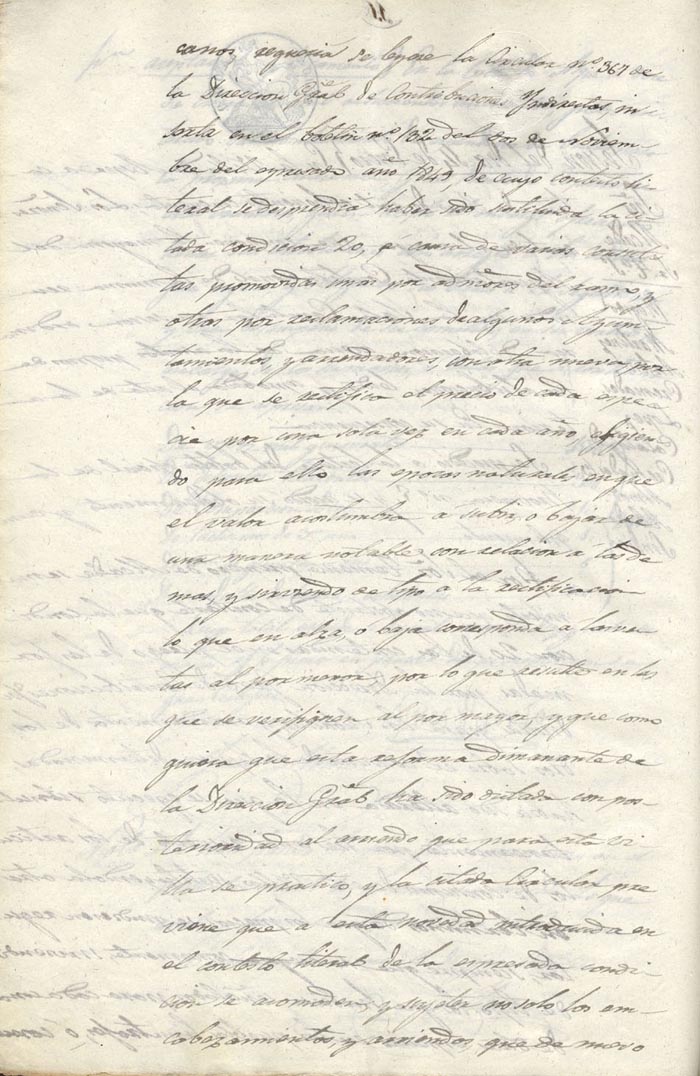 canos, requeria se leyese la Circular nº 367 de
la Direccion Gral de Contribuciones Yndirectas, in-
serta en el boletin nº 132 del dos de Noviem-
bre del espresado año 1849, de cuyo contesto li-
teral se desprendia haber sido sostituida la ci-
tada condicion 20, p causa de varias consul-
tas promovidas unas por admores del ramo, y
otras por reclamaciones de algunos Ayun-
tamientos, y arrendadores, con otra nueva por
la que se rectifica el precio de cada espe-
cie por una sola vez en cada año, eligien-
do para ello las epocas naturales, en que
el valor acostumbra a subir, o bajar de
una manera notable con relacion a las de
mas, y sirviendo de tipo a la rectificacion
lo que en alza, o baja corresponda a las ven-
tas al por menor, por lo que resulte en las
que se verifiquen al por mayor, y que como
quiera que esta reforma dimanante de
la Direccion Gral ha sido dictada con pos-
terioridad al arriendo que para esta vi-
lla se practico, y la citada Circular pre
viene que a esta novedad introducida en
el contesto literal de la espresada condi-
cion se acomoden, y sujeten no solo los en-
cabezamientos, y arriendos, que de nuevo